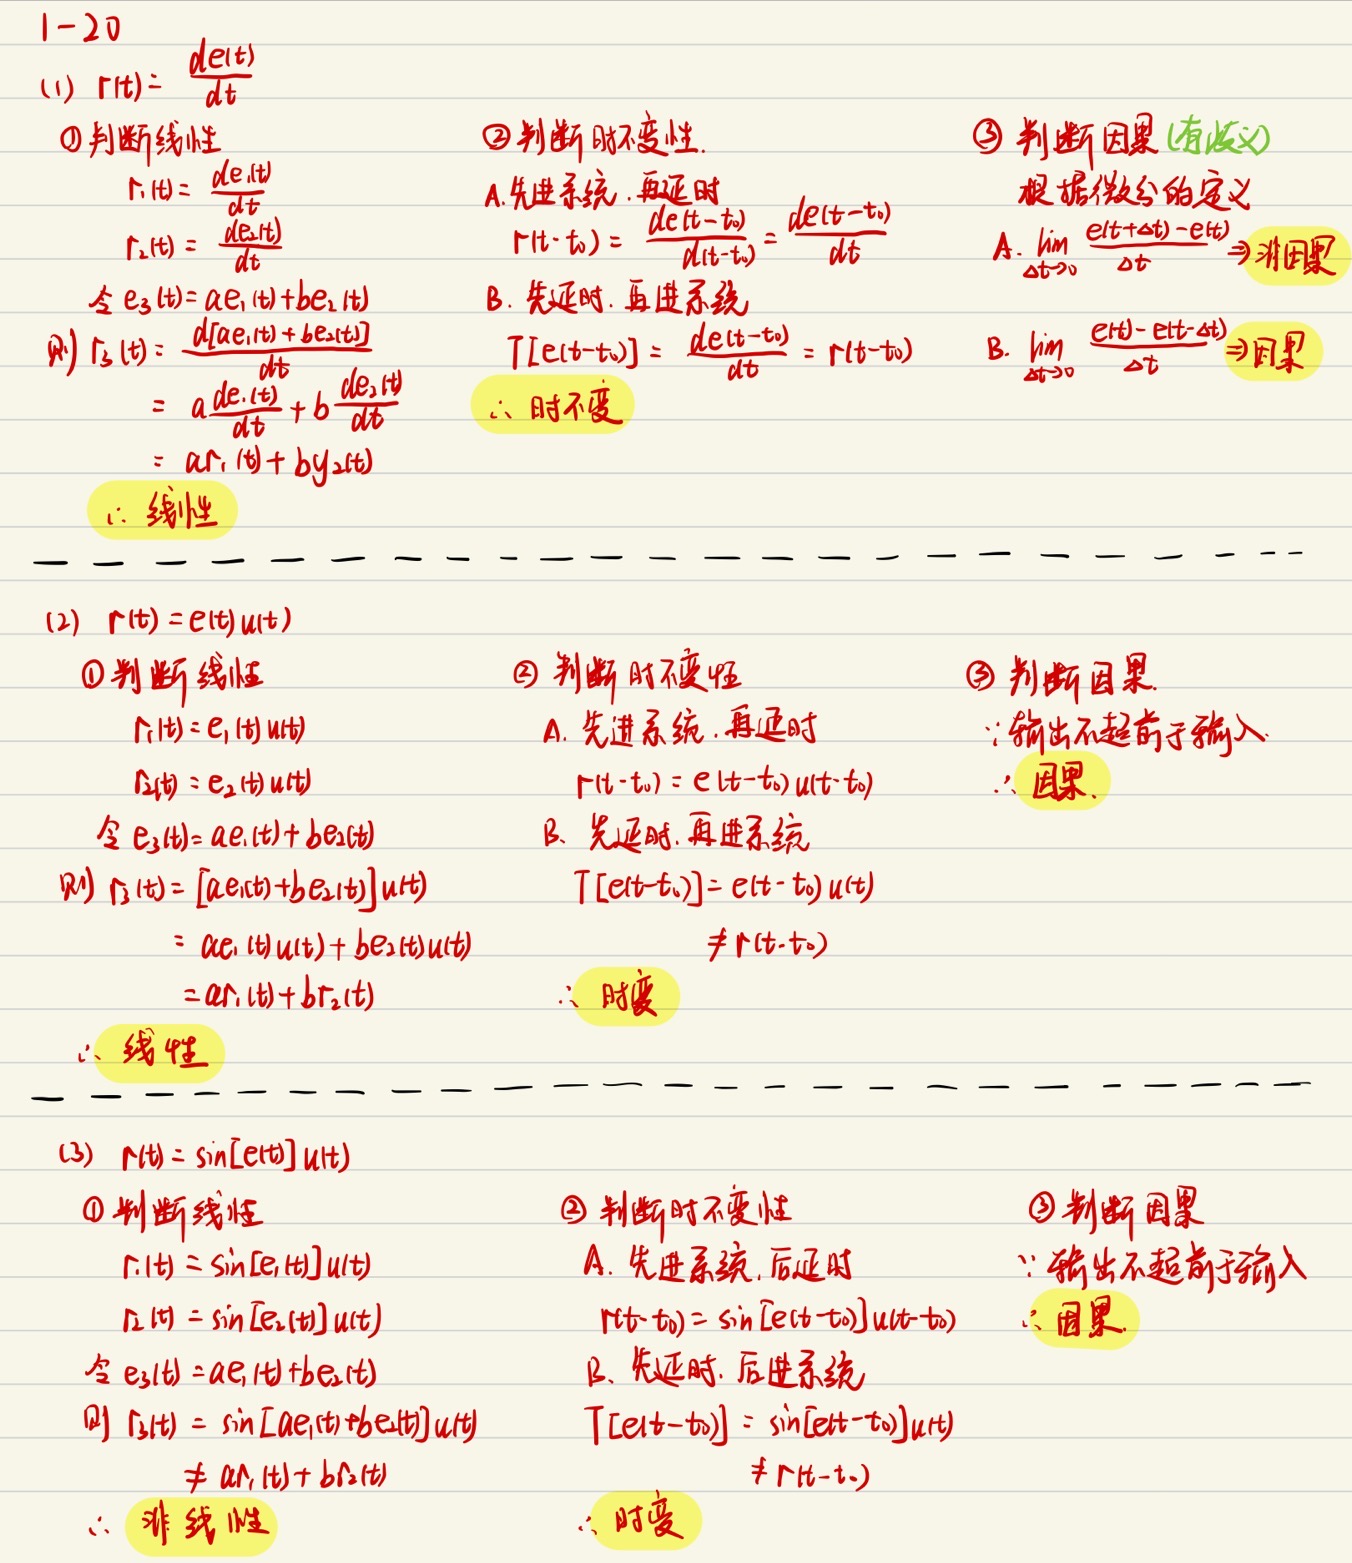 1-20
(1) r(t) = de(t)/dt
① 判断线性
r₁(t) = de₁(t)/dt
r₂(t) = de₂(t)/dt
令 e₃(t) = ae₁(t) + be₂(t)
则 r₃(t) = d[ae₁(t) + be₂(t)]/dt
= a de₁(t)/dt + b de₂(t)/dt
= ar₁(t) + by₂(t)
∴ 线性
② 判断时不变性.
A. 先进系统. 再延时
r(t-t₀) = de(t-t₀)/d(t-t₀) = de(t-t₀)/dt
B. 先延时. 再进系统
T[e(t-t₀)] = de(t-t₀)/dt = r(t-t₀)
∴ 时不变
③ 判断因果 (有歧义)
根据微分的定义
A. lim Δt→0 e(t+Δt)-e(t)/Δt ⇒ 非因果
B. lim Δt→0 e(t)-e(t-Δt)/Δt ⇒ 因果
(2) r(t) = e(t)u(t)
① 判断线性
r₁(t) = e₁(t)u(t)
r₂(t) = e₂(t)u(t)
令 e₃(t) = ae₁(t) + be₂(t)
则 r₃(t) = [ae₁(t) + be₂(t)]u(t)
= ae₁(t)u(t) + be₂(t)u(t)
= ar₁(t) + br₂(t)
∴ 线性
② 判断时不变性
A. 先进系统. 再延时
r(t-t₀) = e(t-t₀)u(t-t₀)
B. 先延时. 再进系统
T[e(t-t₀)] = e(t-t₀)u(t)
≠ r(t-t₀)
∴ 时变
③ 判断因果.
∵ 输出不超前于输入.
∴ 因果.
(3) r(t) = sin[e(t)]u(t)
① 判断线性
r₁(t) = sin[e₁(t)]u(t)
r₂(t) = sin[e₂(t)]u(t)
令 e₃(t) = ae₁(t) + be₂(t)
则 r₃(t) = sin[ae₁(t) + be₂(t)]u(t)
≠ ar₁(t) + br₂(t)
∴ 非线性
② 判断时不变性
A. 先进系统. 后延时
r(t-t₀) = sin[e(t-t₀)]u(t-t₀)
B. 先延时. 后进系统
T[e(t-t₀)] = sin[e(t-t₀)]u(t)
≠ r(t-t₀)
∴ 时变
③ 判断因果
∵ 输出不超前于输入
∴ 因果.